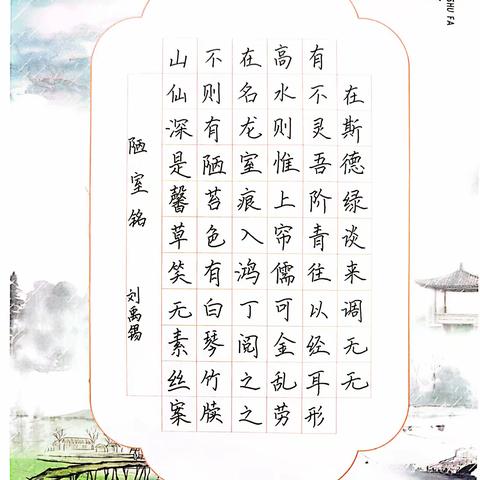 SHU FA
陋室铭 刘禹锡
山不在高有
仙则名水不在
深有龙则灵斯
是陋室惟吾德
馨苔痕上阶绿
草色入帘青谈
笑有鸿儒往来
无白丁可以调
素琴阅金经无
丝竹之乱耳无
案牍之劳形